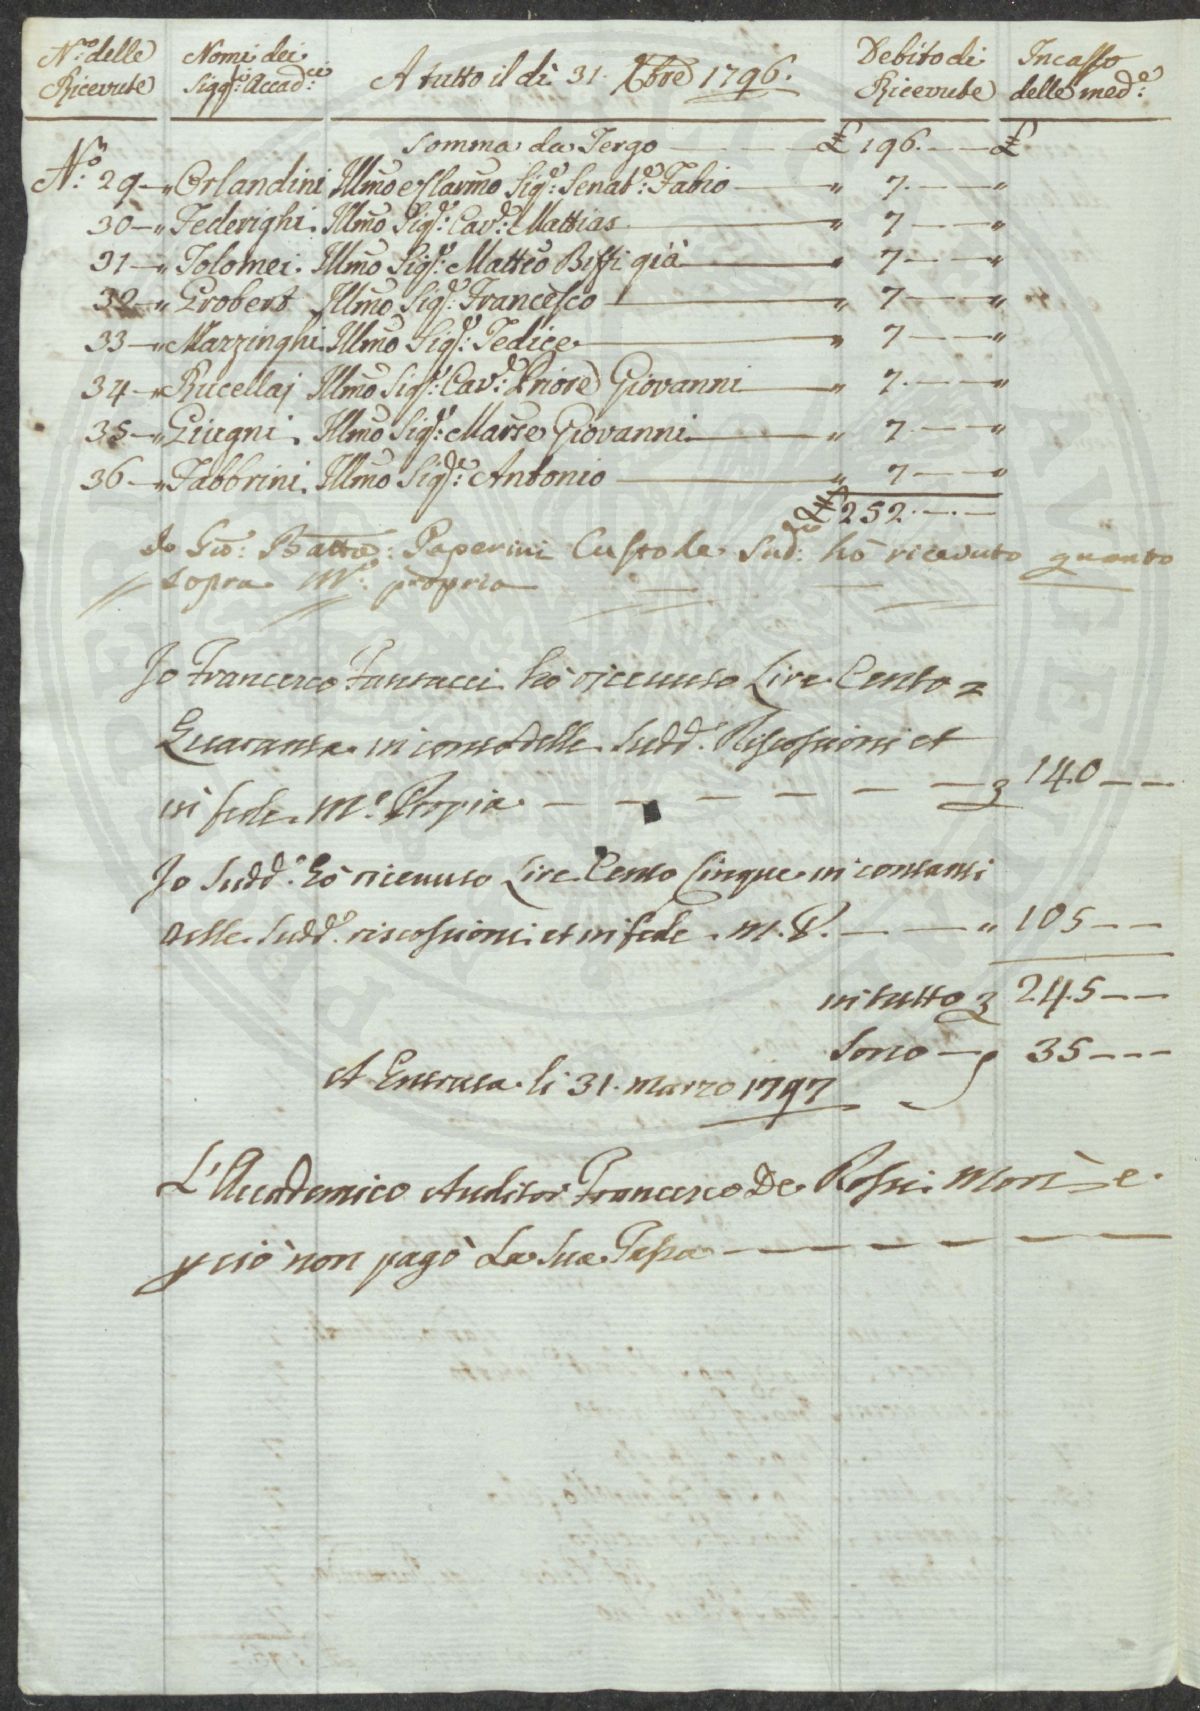 N.º delle Ricevute
Nomi dei Sigg.ri Accad.ci
A tutto il dì 31. Xbre 1796.
Debito di Ricevute
Incasso delle med.e
Somma da Tergo £ 196.
£
N.º 29 Orlandini Illmo e Clarmo Sig.e Senat.e Fabio " 7. "
30 Federighi. Illmo Sig.e Cav.e Mattias " 7 "
31 Tolomei. Illmo Sig.e Matteo Biffi già " 7 "
32 Grobert Illmo Sig.e Francesco " 7 "
33 Marzinghi Illmo Sig.e Tedice " 7 "
34 Rucellaj Illmo Sig.e Cav.e Priore Giovanni " 7. "
35 Giugni. Illmo Sig.e Marse Giovanni " 7. "
36 Fabbrini. Illmo Sig.e Antonio " 7 "
£ 252.
Io Gio: Batta: Paperini Custode Sud.do hò ricevuto quanto
sopra M.o propria
Io Francesco Fantacci hò ricevuto Lire Cento
Quaranta in conto delle Sudd.e Riscossioni et
in fede M.o Propia 140
Io Sudd.o hò ricevuto Lire Cento Cinque in contanti
delle Sudd.e riscossioni et in fede M. P. " 105
in tutto 245
Sono 35
A Entrata li 31. Marzo 1797
L'Accademico Auditor Francesco De Rossi Morì e
p ciò non pagò La Sua Tassa